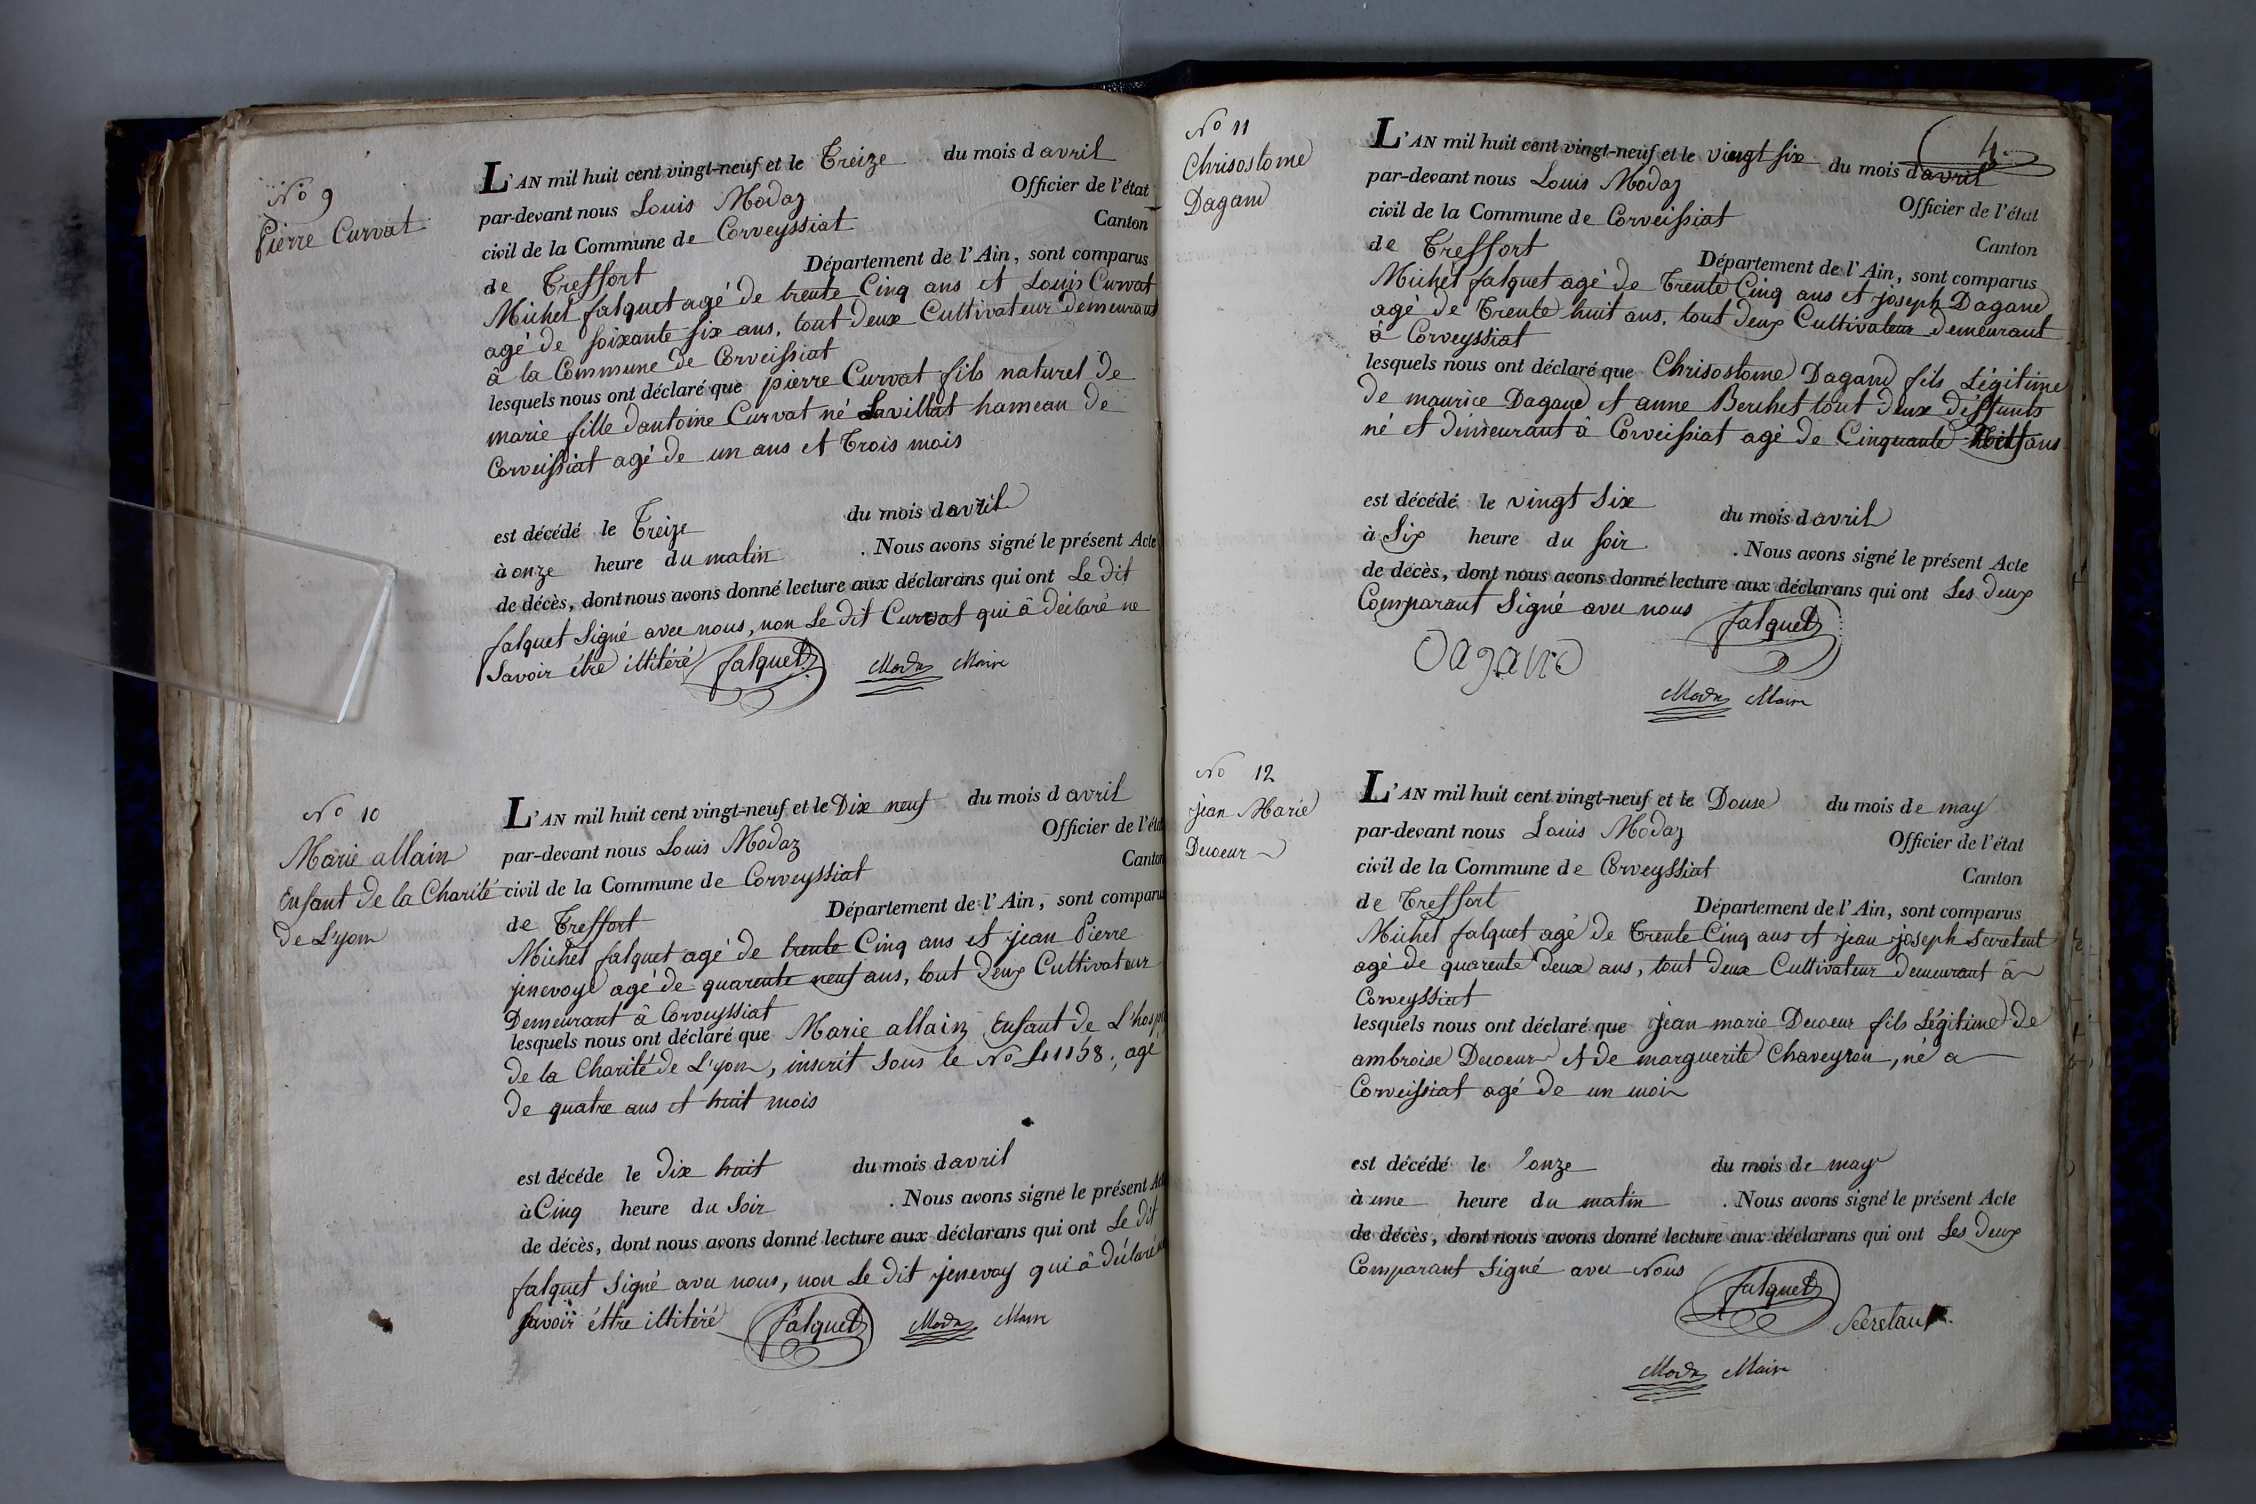 No 9
Pierre Curvat
L'AN mil huit cent vingt-neuf et le Treize du mois d avril
par-devant nous Louis Modaz Officier de l'état
civil de la Commune de Corveyssiat Canton
de Treffort Département de l'Ain, sont comparus
Michel falquet agé de trente Cinq ans et Louis Curvat
agé de soixante six ans, tout deux Cultivateur demeurant
à la Commune de Corveissiat
lesquels nous ont déclaré que pierre Curvat fils naturel de
marie fille dantoine Curvat né Lavillat hameau de
Corveissiat agé de un ans et Trois mois
est décédé le Treize du mois d avril
à onze heure du matin . Nous avons signé le présent Acte
de décès, dont nous avons donné lecture aux déclarans qui ont Le dit
falquet Signé avec nous, non Le dit Curvat qui â déclaré ne
Savoir être illitéré falquet Modaz Maire
No 10
Marie allain
Enfant de la Charité
de L'yom
L'AN mil huit cent vingt-neuf et le Dix neuf du mois d avril
par-devant nous Louis Modaz Officier de l'état
civil de la Commune de Corveyssiat Canton
de Treffort Département de l'Ain, sont comparus
Michel falquet agé de trente Cinq ans et jean Pierre
jenevoye agé de quarente neuf ans, tout deux Cultivateur
Demeurant à Corveyssiat
lesquels nous ont déclaré que Marie allain Enfant de L'hosp
de la Charité de L'yom, inscrit Sous le No 41158, agé
de quatre ans et huit mois
est décéde le dix huit du mois d avril
à Cinq heure du Soir . Nous avons signé le présent Acte
de décès, dont nous avons donné lecture aux déclarans qui ont Le dit
falquet Signé avec nous, non Le dit jenevoy qui â déclaré
savoir éttre illitéré falquet Modaz Maire
4
No 11
Chrisostome
Dagand
L'AN mil huit cent vingt-neuf et le vingt six du mois d avril
par-devant nous Louis Modaz Officier de l'état
civil de la Commune de Corveissiat Canton
de Treffort Département de l'Ain, sont comparus
Michel falquet agé de Trente Cinq ans et joseph Dagand
agé de Trente huit ans, tout deux Cultivateur demeurant
à Corveyssiat
lesquels nous ont déclaré que Chrisostome Dagand fils Légitime
de maurice Dagand et anne Berchet tout deux déffunts
né et demeurant à Corveissiat agé de Cinquante ans
est décédé le vingt Six du mois d avril
à Six heure du soir . Nous avons signé le présent Acte
de décès, dont nous avons donné lecture aux déclarans qui ont Les deux
Comparant Signé avec nous falquet
Dagand
Modaz Maire
No 12
jean Marie
Decoeur
L'AN mil huit cent vingt-neuf et le Douse du mois de may
par-devant nous Louis Modaz Officier de l'état
civil de la Commune de Corveyssiat Canton
de Treffort Département de l'Ain, sont comparus
Michel falquet agé de Trente Cinq ans et jean joseph
agé de quarente deux ans, tout deux Cultivateur demeurant â
Corveyssiat
lesquels nous ont déclaré que jean marie Decoeur fils Légitime de
ambroise Decoeur et de marguerite Chaveyron, né a
Corveissiat agé de un mois
est décédé le onze du mois de may
à une heure du matin . Nous avons signé le présent Acte
de décès, dont nous avons donné lecture aux déclarans qui ont Les deux
Comparant Signé avec Nous falquet
Modaz Maire